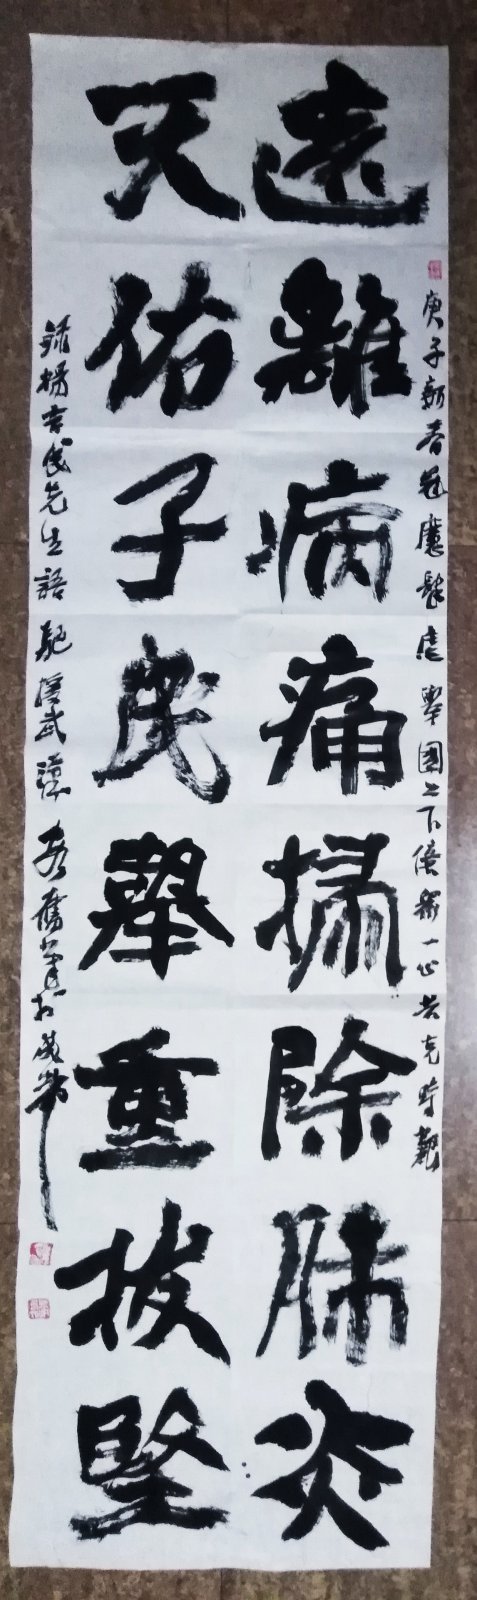 庚子新春冠魔肆虐舉國上下億衆一心共克時艱
遠離病痛掃除肺炎
天佑子民舉重拔堅
楊吉民先生語馳援武漢